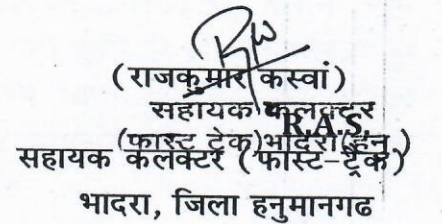 (राजकुमार कस्वां)
सहायक कलक्टर
R.A.S.
(फास्ट ट्रेक) भादरा (हनु.)
सहायक कलक्टर ( फास्ट-ट्रैक )
भादरा, जिला हनुमानगढ